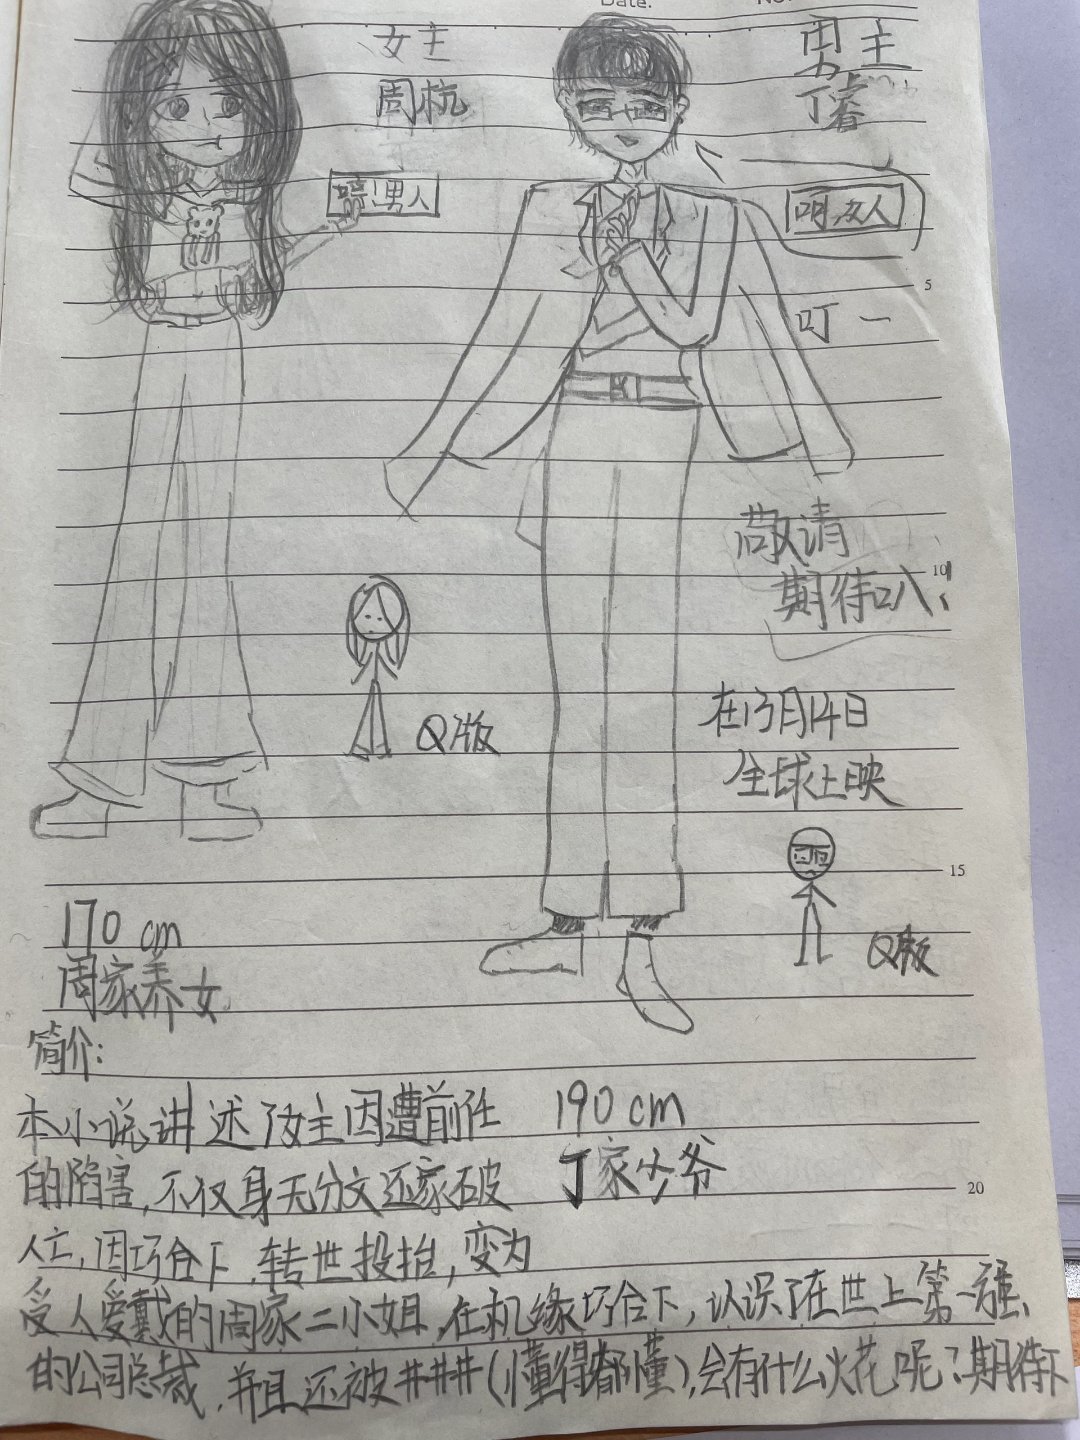 Date.
No.
女主
周杭
男主
丁睿
哼!男人
呵,女人
5
叮一
敬请
期待叭、
10
在13月14日
全球上映
Q版
15
Q版
170 cm
周家养女
简介:
本小说讲述了女主因遭前任
190 cm
的陷害,不仅身无分文还家破
丁家少爷
20
人亡,因巧合下,转世投抬,变为
受人爱戴的周家二小姐,在机缘巧合下,认识了在世上第一强、
的公司总裁,并且还被井井井(懂得都懂),会有什么火花呢?期待下